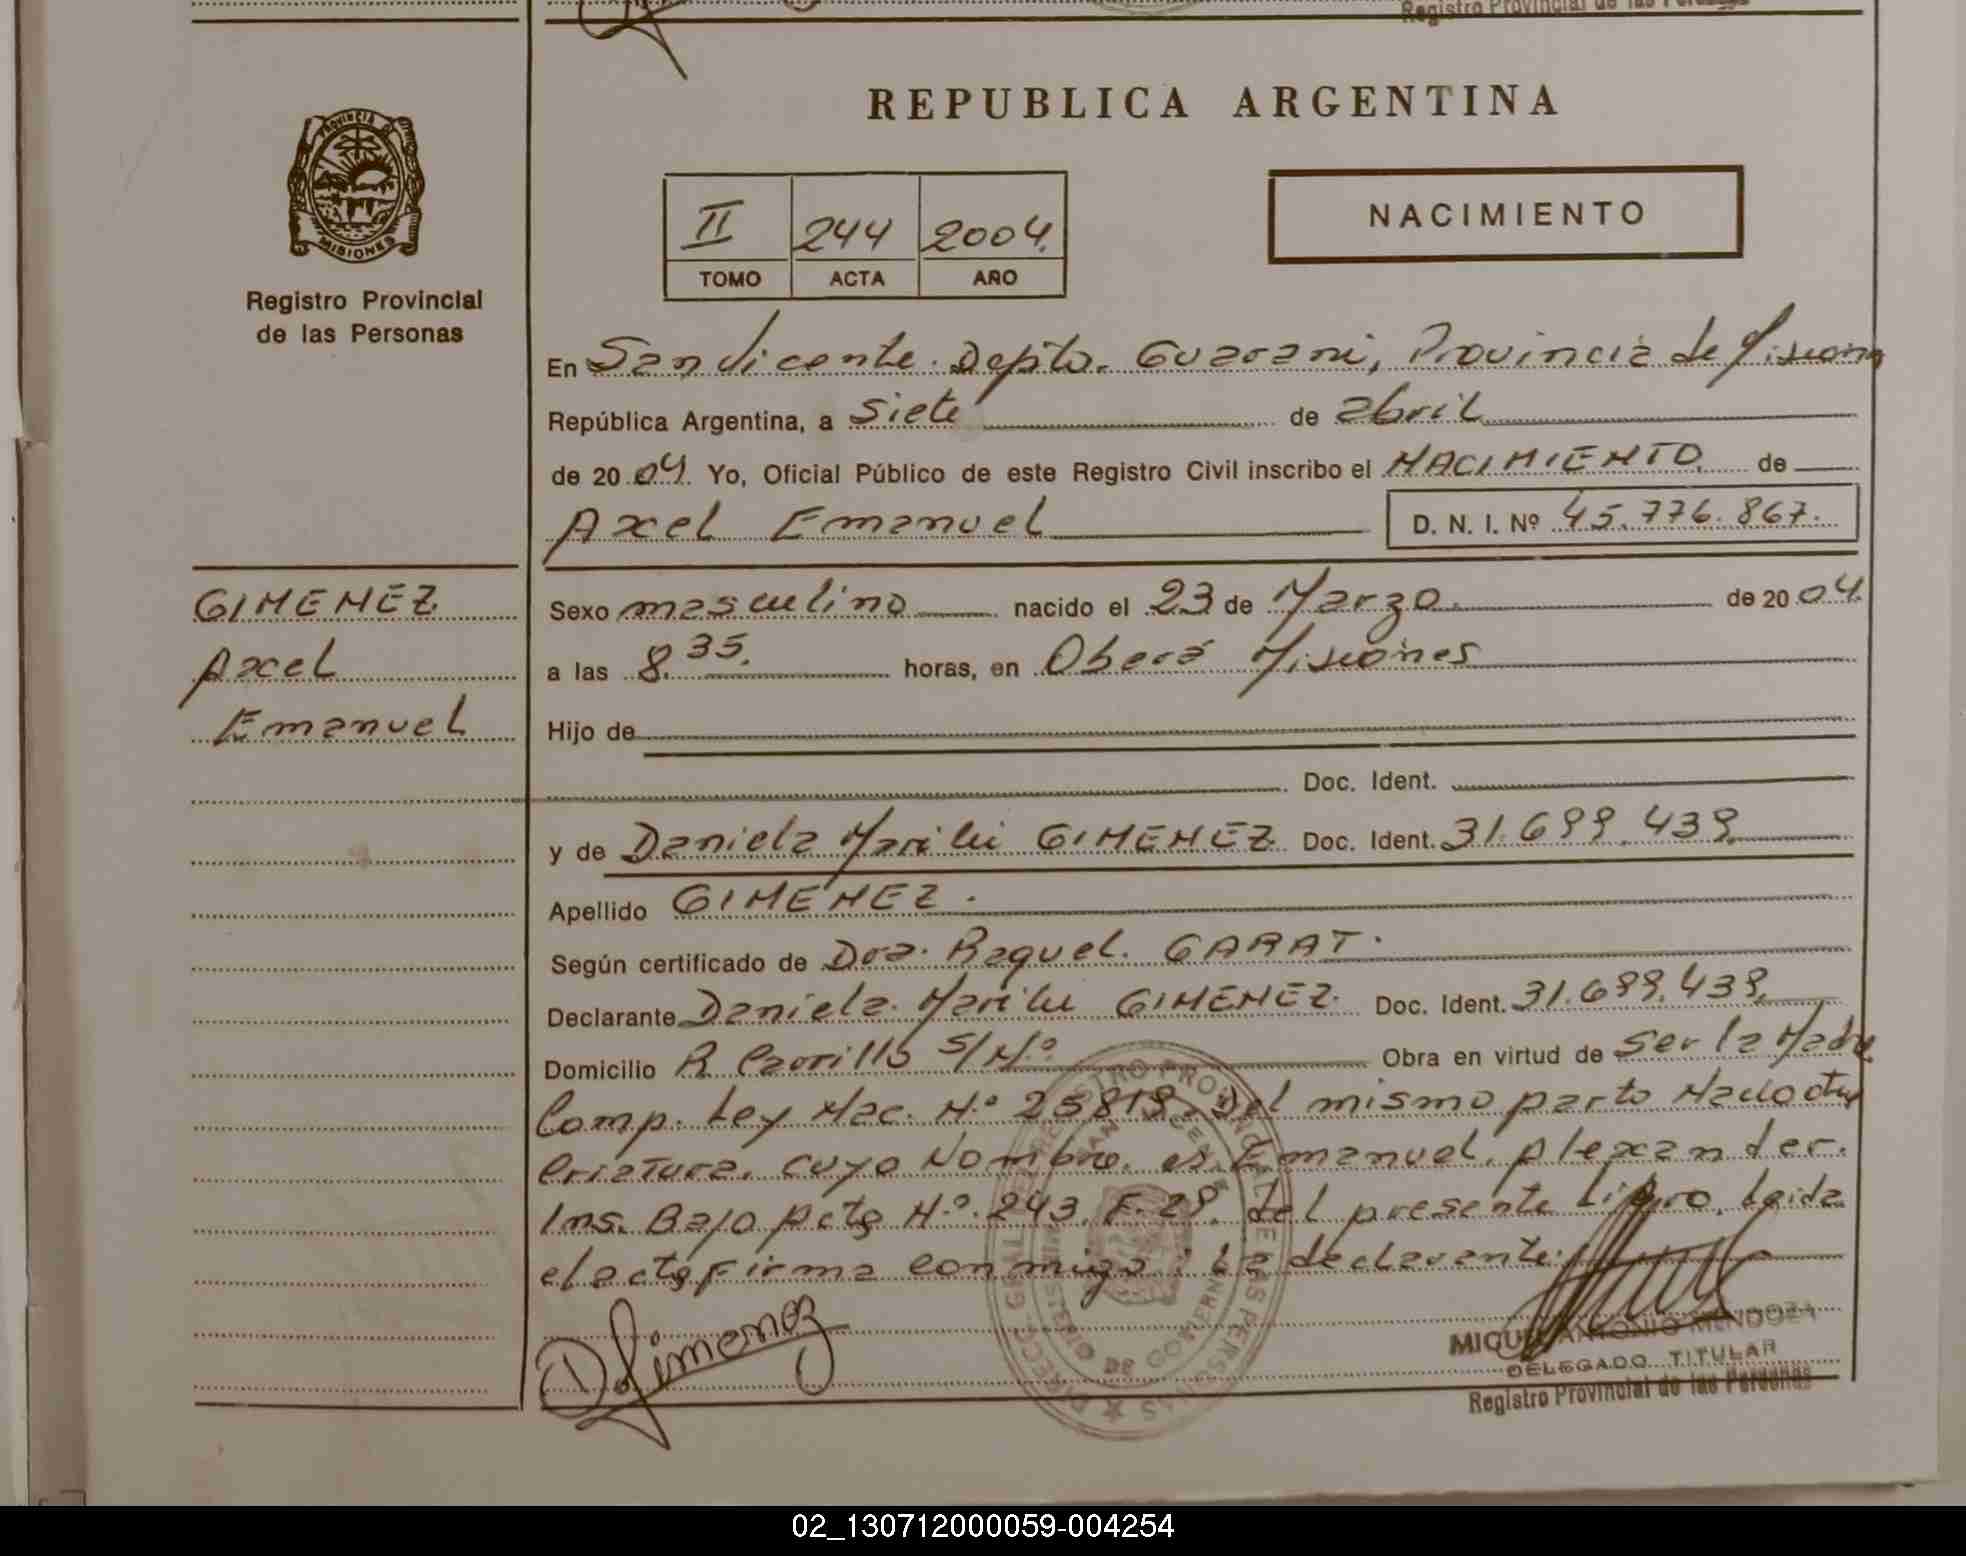 Registro Provincial de las Personas
REPUBLICA ARGENTINA
PROVINCIA DE
MISIONES
Registro Provincial
de las Personas
II 244 2004.
TOMO ACTA AÑO
NACIMIENTO
En San Vicente. Depto. Guarani, Provincia de Misiones
República Argentina, a Siete de abril
de 2004. Yo, Oficial Público de este Registro Civil inscribo el NACIMIENTO de
Axel Emanuel D. N. I. Nº 45.776.867.
GIMENEZ
Axel
Emanuel
Sexo masculino nacido el 23 de Marzo. de 2004.
a las 8.35. horas, en Oberá Misiones
Hijo de
Doc. Ident.
y de Daniela Marilú GIMENEZ Doc. Ident. 31.699.439
Apellido GIMENEZ.
Según certificado de Dra. Raquel. GARAT.
Declarante Daniela. Marilu GIMENEZ. Doc. Ident. 31.699.439
Domicilio R Carrillo S/N.º Obra en virtud de Ser la Madre
Comp. Ley Nac. N.º 25819. Del mismo parto Nacio otra
Criatura. cuyo Nombre. es Emanuel. Alexander.
Ins. Bajo Acta N.º 243. F. 29. del presente Libro. Leida
el acta firma conmigo: La declarante.
D Gimenez
MIGUEL ANTONIO MENDOZA
DELEGADO TITULAR
Registro Provincial de las Personas
02_130712000059-004254